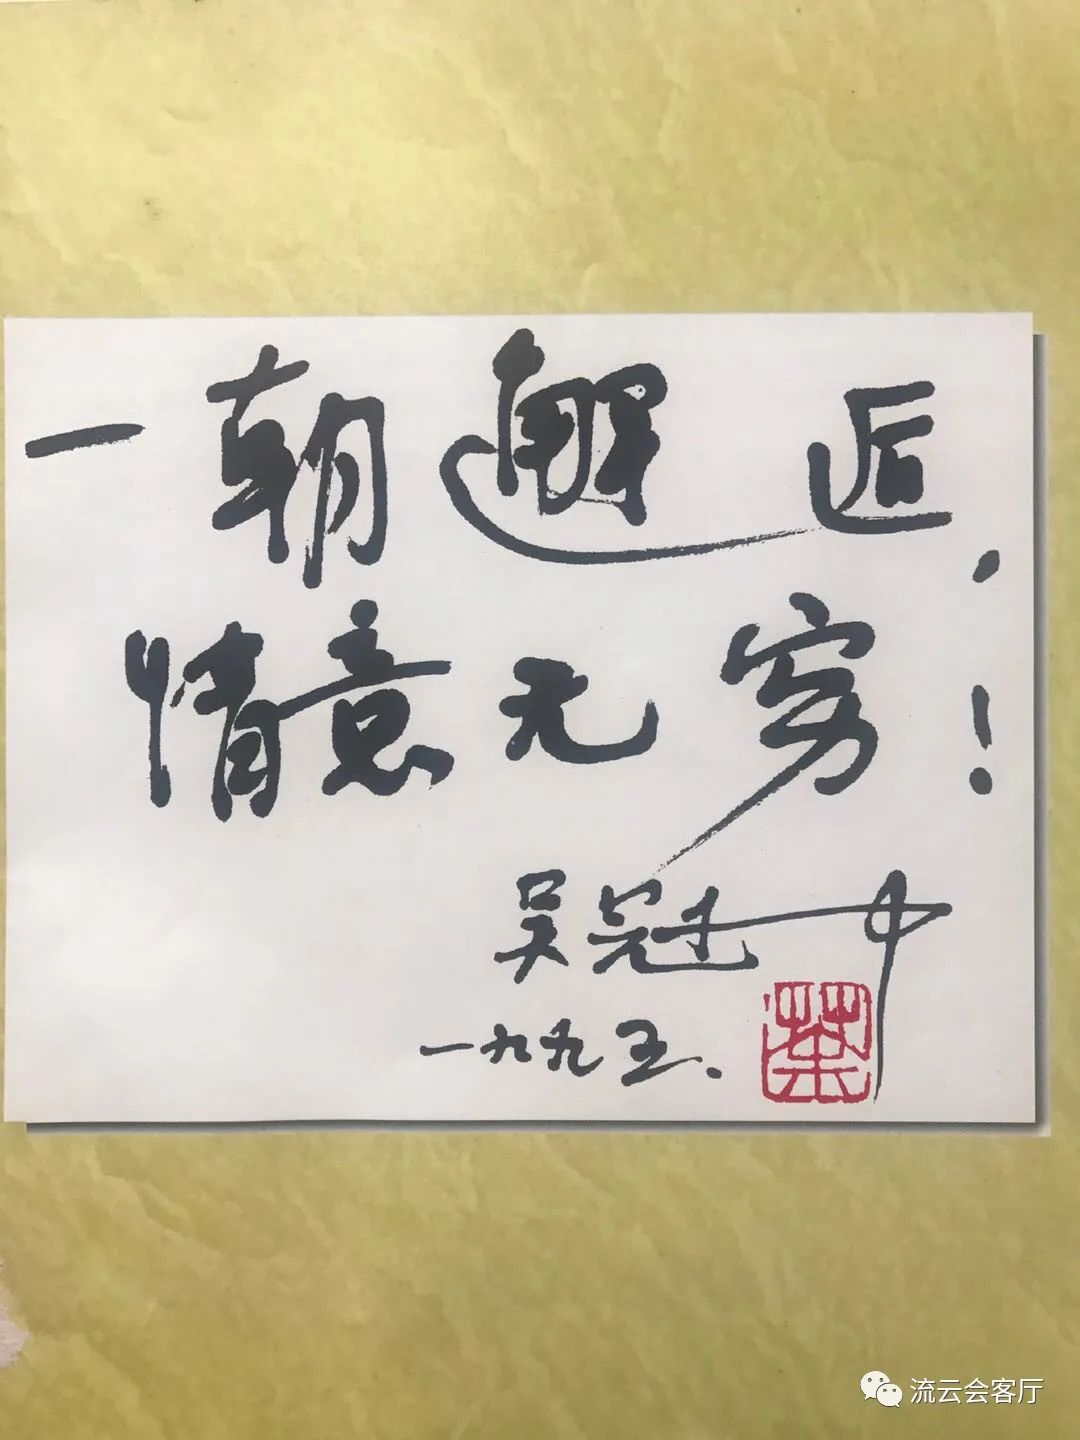 一朝邂逅，
情意无穷！
吴冠中
一九九五.
荼
流云会客厅